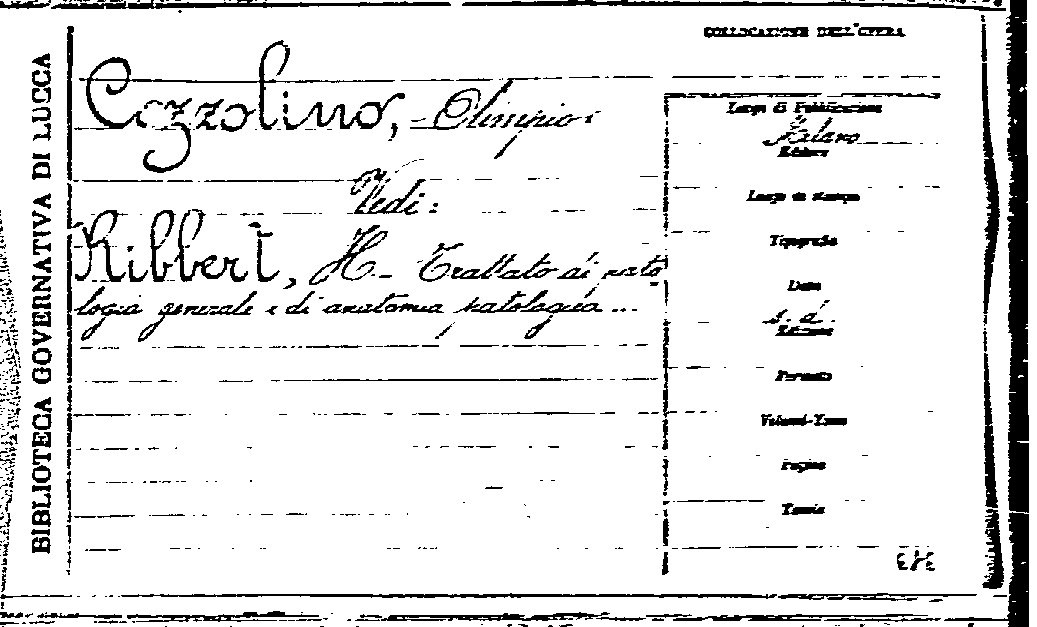 BIBLIOTECA GOVERNATIVA DI LUCCA
COLLOCAZIONE DELL'OPERA
Cozzolino, - Olimpio:
Vedi:
Ribbert, H. - Trattato di pato
logia generale e di anatomia patologica ...
Luogo di Pubblicazione
Milano
Editore
Luogo di stampa
Tipografia
Data
s. d.
Edizione
Formato
Volumi-Tomo
Pagine
Tavole